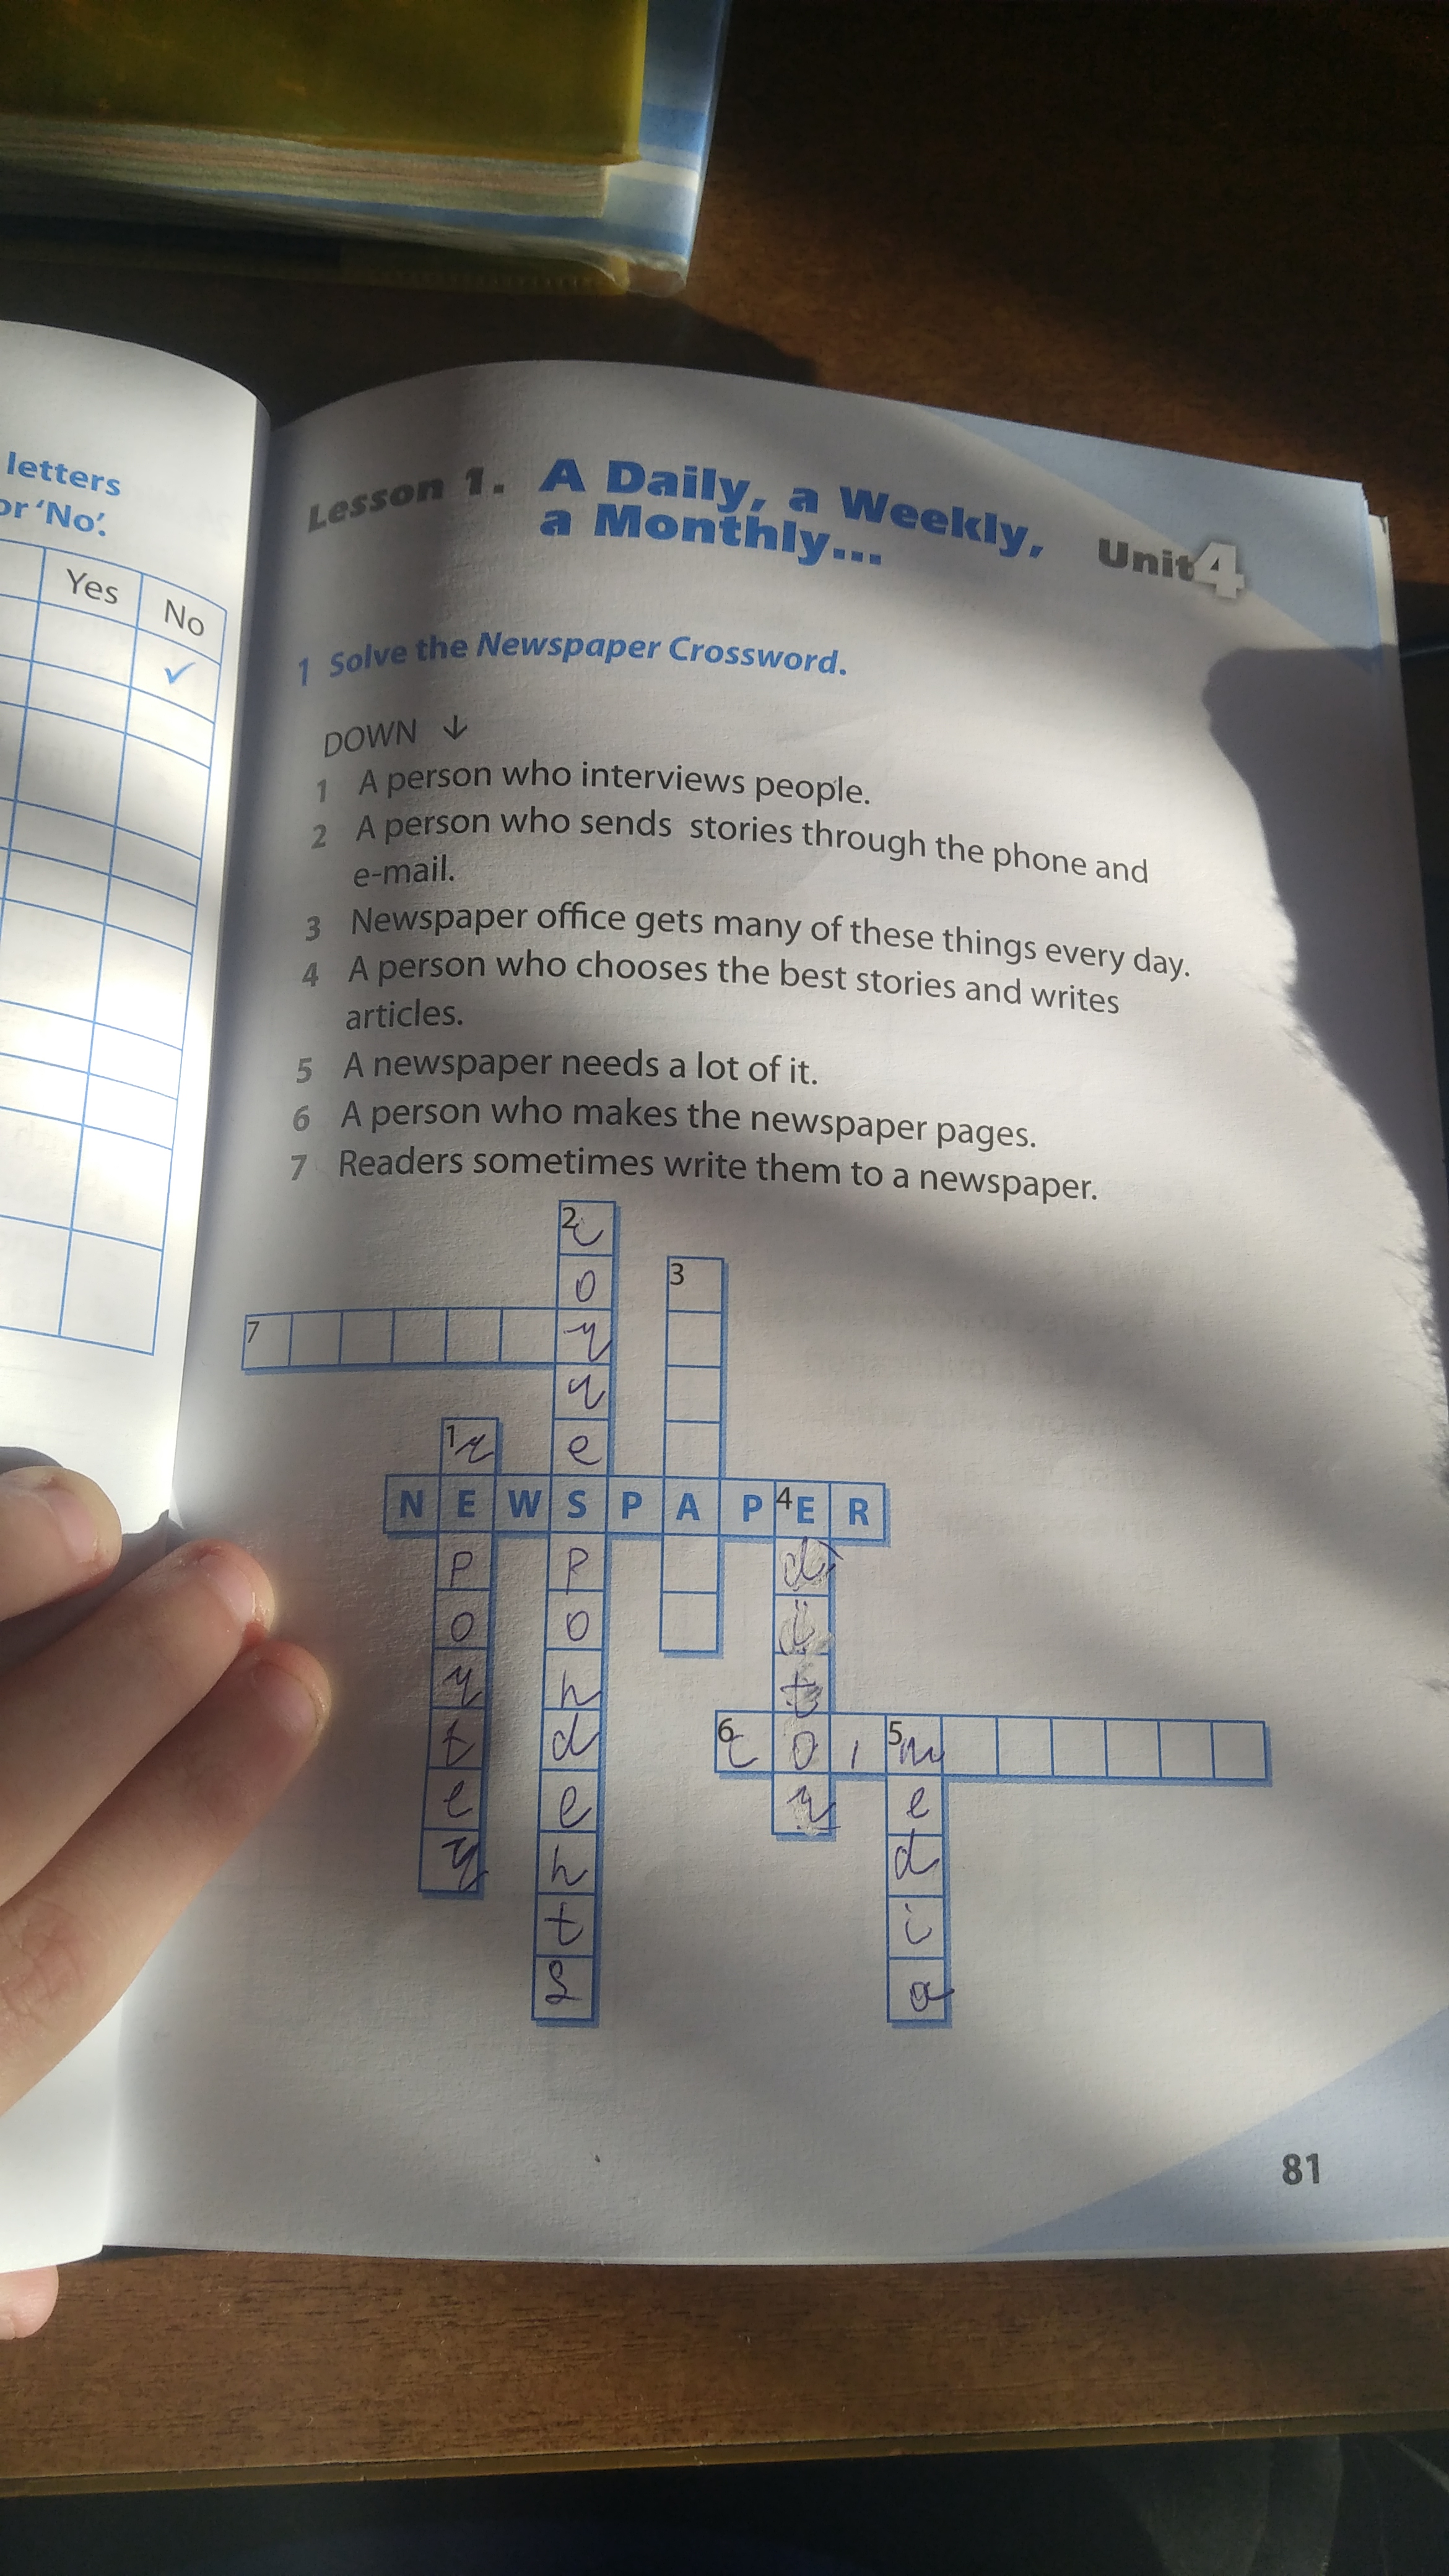 letters
or 'No'.
Yes No
Lesson 1. A Daily, a Weekly,
a Monthly...
Unit 4
1 Solve the Newspaper Crossword.
DOWN ↓
1 A person who interviews people.
2 A person who sends stories through the phone and
e-mail.
3 Newspaper office gets many of these things every day.
4 A person who chooses the best stories and writes
articles.
5 A newspaper needs a lot of it.
6 A person who makes the newspaper pages.
7 Readers sometimes write them to a newspaper.
2 c
o
3
7 r
r
1 r e
N E W S P A P 4 E R
p p d
o o i
r n t
6 c o , 5 m
t d
r e
e e d
r n i
t a
s
81